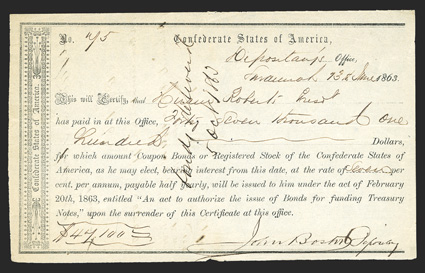 No. 75
Confederate States of America,
Depositary's Office,
Savannah 13th June 1863.
This will Certify, that Hiram Roberts Prest
has paid in at this Office, Forty Seven thousand one
hundred Dollars,
for which amount Coupon Bonds or Registered Stock of the Confederate States of
America, as he may elect, bearing interest from this date, at the rate of Seven per
cent. per annum, payable half yearly, will be issued to him under the act of February
20th, 1863, entitled "An act to authorize the issue of Bonds for funding Treasury
Notes," upon the surrender of this Certificate at this office.
$47,100
John Boston Depositary
Confederate States of America.
Bonds delivered